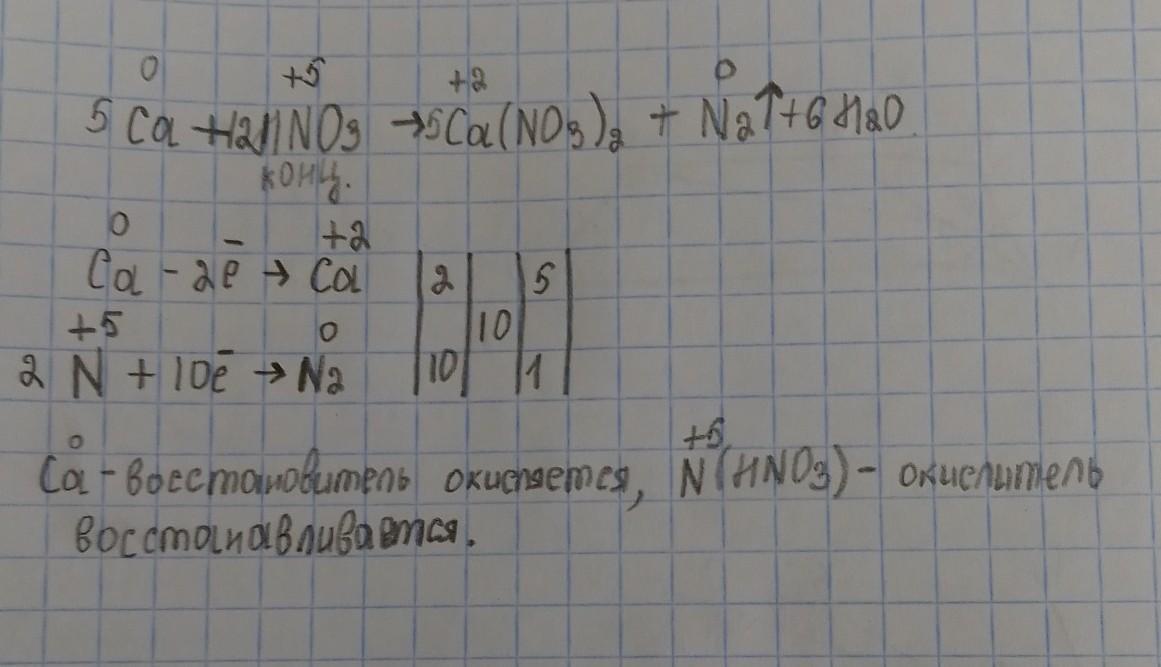 0 +5 +2 0
5 Ca + 12HNO3 → 5Ca(NO3)2 + N2↑ + 6H2O
конц.
0 +2
Ca - 2ē → Ca | 2 | | 5 |
+5 0 | | 10 | |
2 N + 10ē → N2 | 10 | | 1 |
0 +5
Ca - восстановитель окисляется, N (HNO3) - окислитель
восстанавливается.